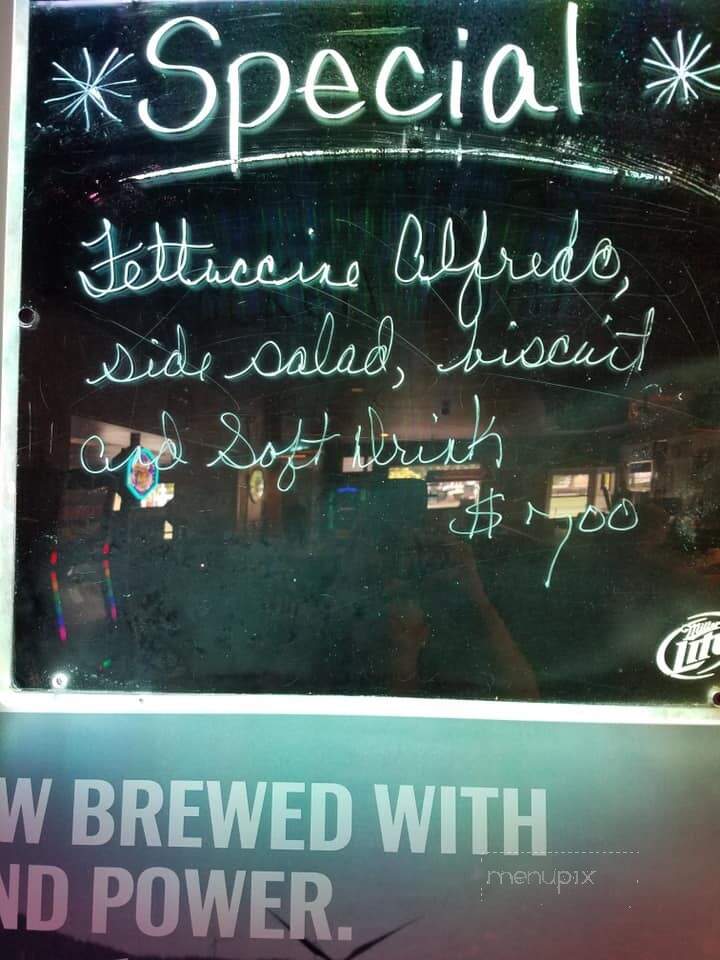 Special
Fettuccine Alfredo,
side salad, biscuit
and Soft Drink
$ 7.00
Miller
Lite
W BREWED WITH
ND POWER.
menupix